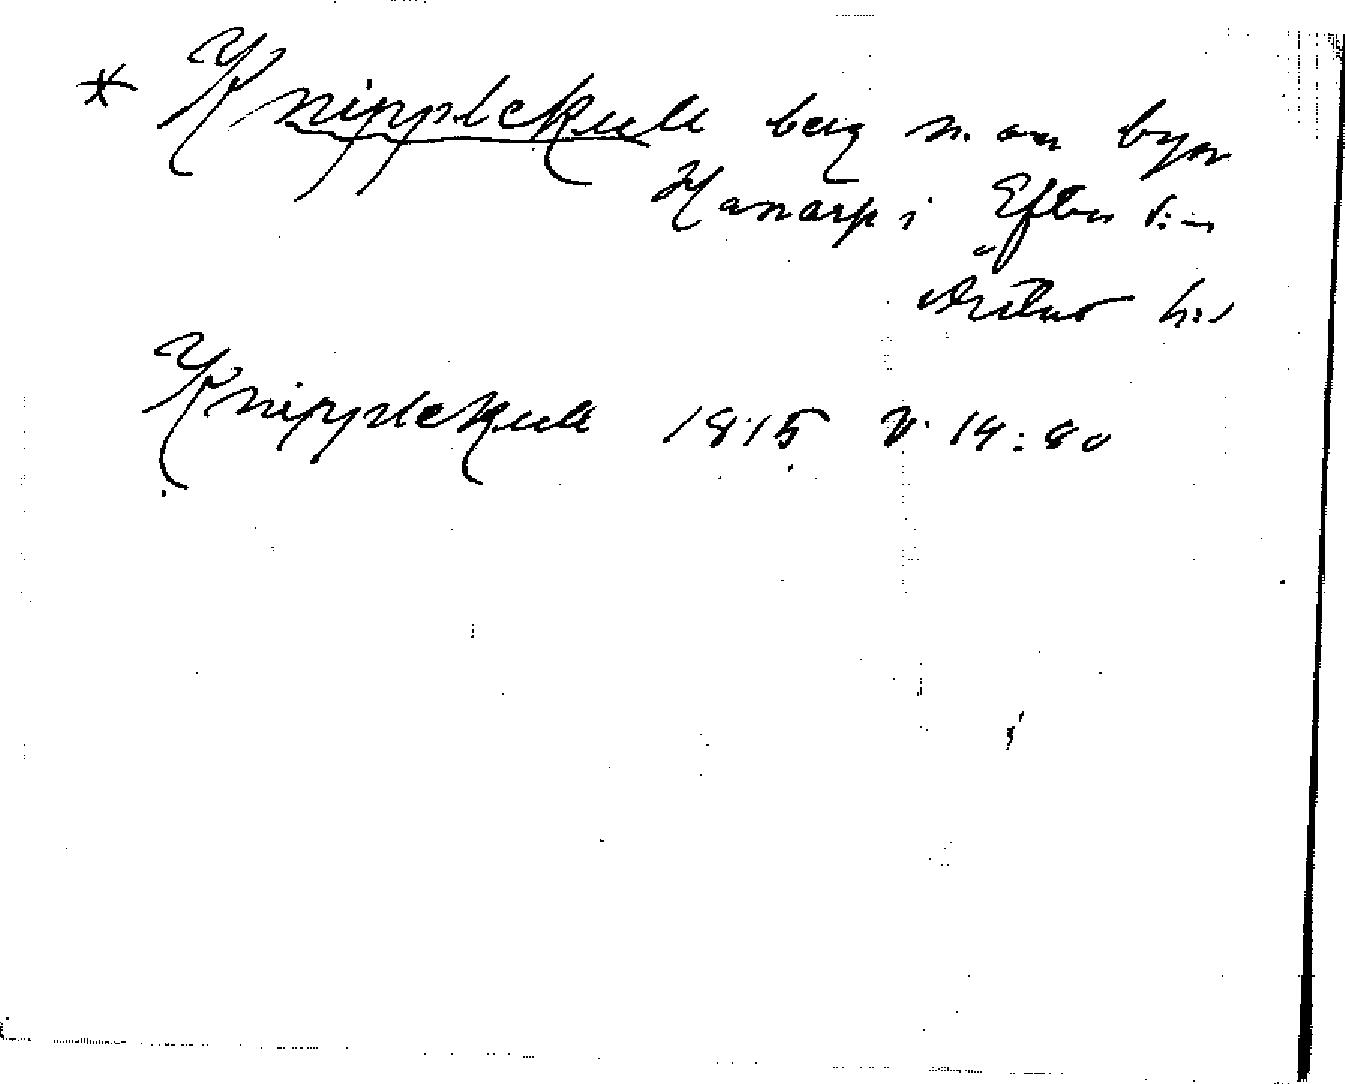 * Knipplekulle berg n. om byn
Hanarp i Eftra sn
Årstad hd
Knipplekulle 1815 V. 14:80